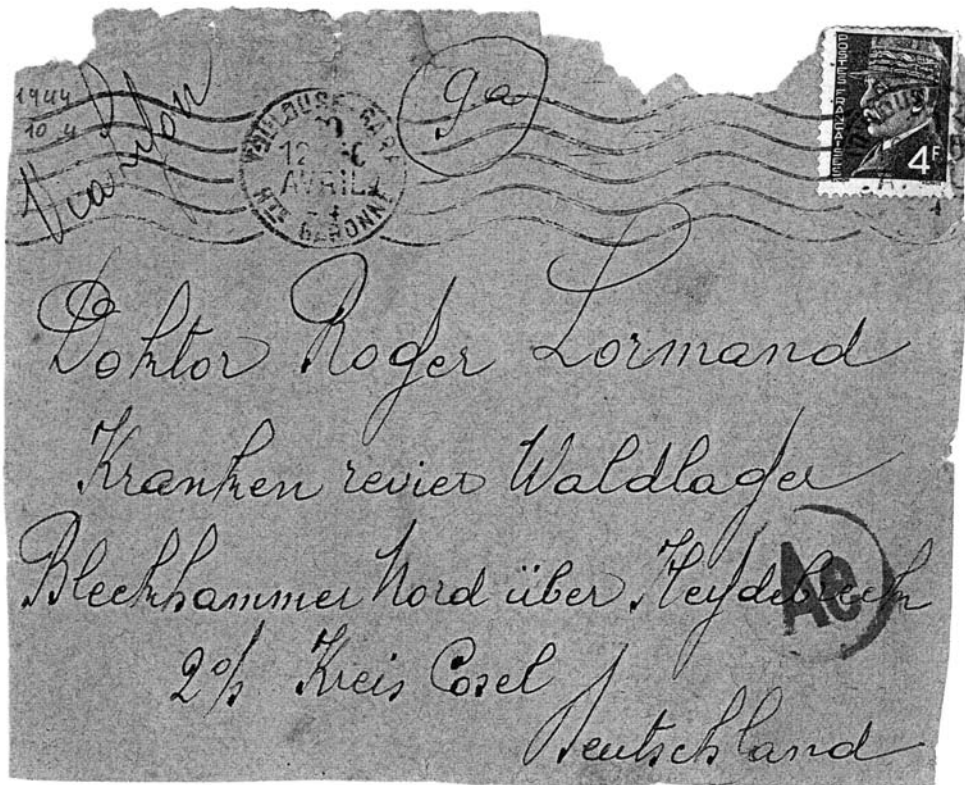 1944
10 4
TOULOUSE-GARE
12
AVRIL
HTE GARONNE
ga
POSTES FRANÇAISES
4F
Doktor Roger Lormand
Kranken revier Waldlager
Bleckhammer Nord über Heydebreck
Ae
Kreis Cosel
Deutschland